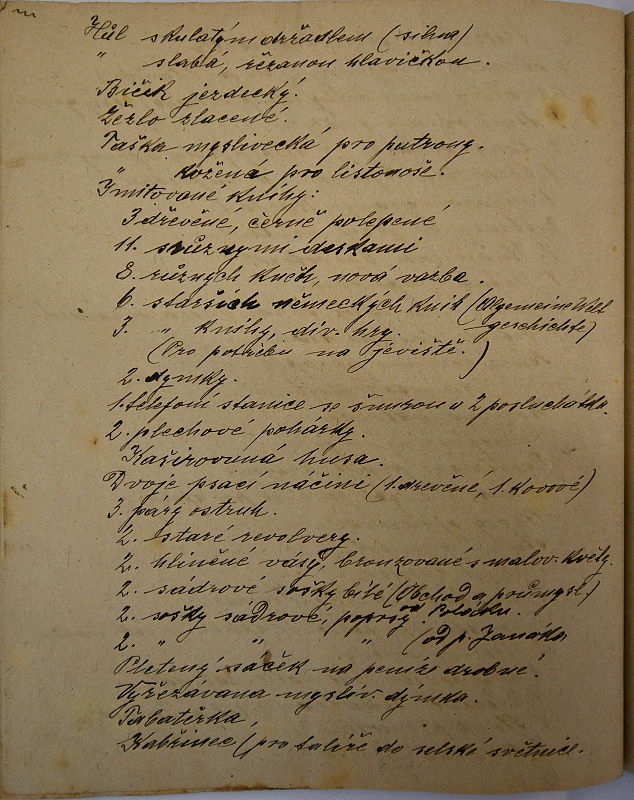 Hůl s kulatým držadlem (silna)
" slabá, řězanou hlavičkou.
Bičík jezdecký.
Žězlo zlacené.
Taška myslivecká pro patrony.
" kožená pro listonoše.
Imitované knihy:
3 dřevěné, černě polepené
11. s různymi deskami
8. různých knih, nová vazba.
6. starších německých knih (Algemeine Welt
3. " knihy, div. hry. geschichte)
(Pro potřebu na jeviště.)
2. dýmky.
1. telefoní stanice se šnurou u 2 posluchátka.
2. plechové pohárky.
Kašírovaná husa.
Dvoje psací náčiní (1. dřevěné, 1. kovové)
3. páry ostruh.
2. staré revolvery.
2. hliněné vásy, bronzované s malov. květy.
2. sádrové sošky bílé (Obchod a průmysl)
2. sošky sádrové, poprsy od Poláku.
2. " " " (od p. Janáka
Pletený sáček na peníze drobné.
Vyřezávana mysliv. dýmka.
Tabatěrka
Kabřinec (pro talíře do selské světnice.